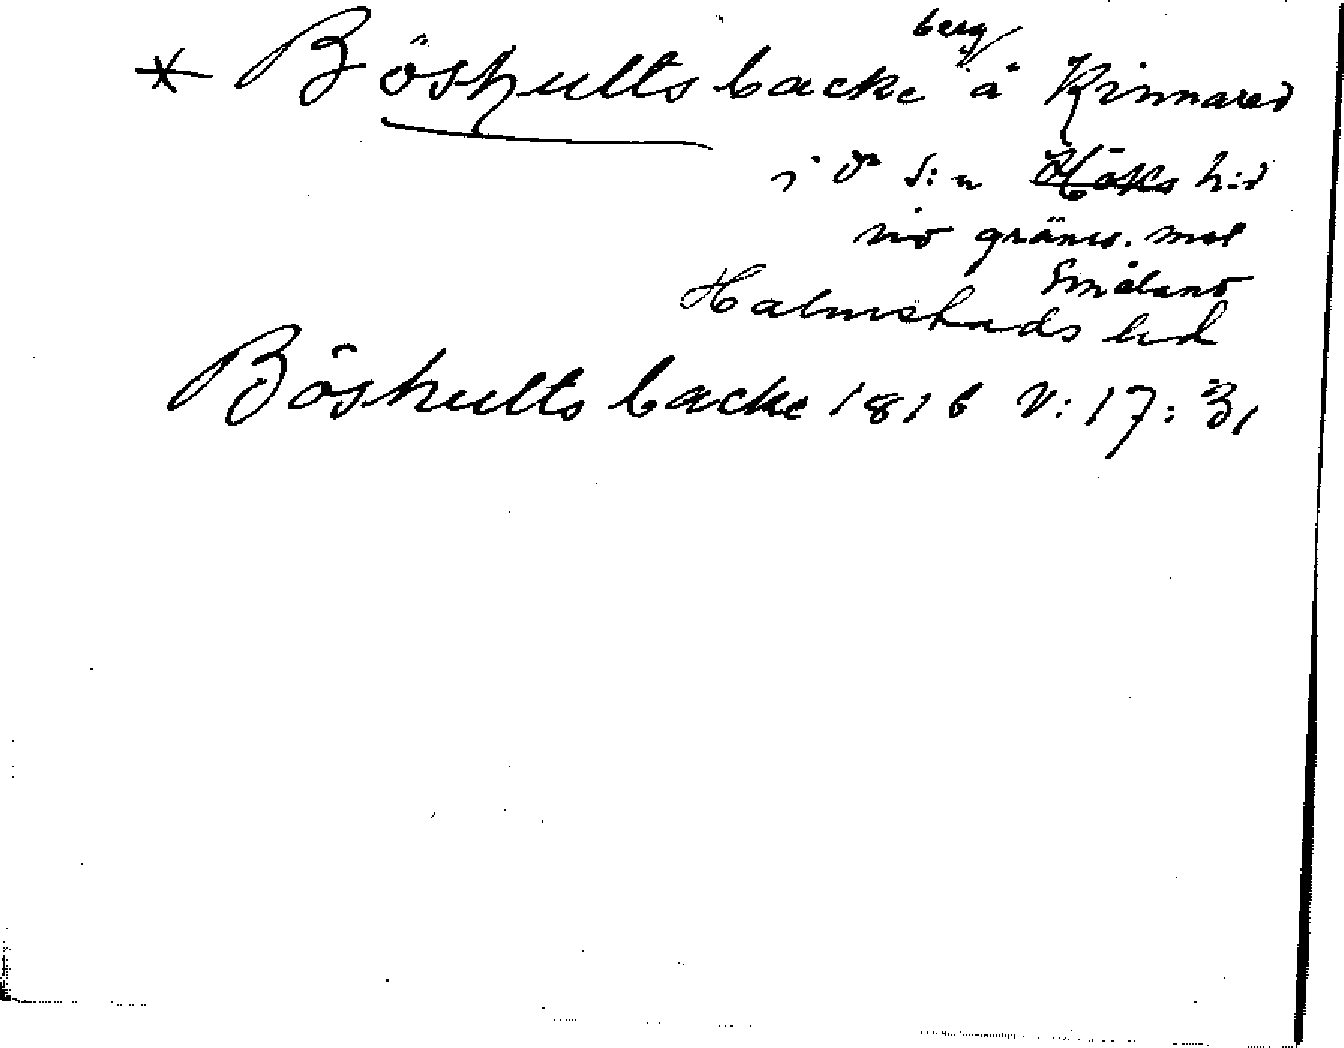 berg
* Böshults backe å Kinnared
i d:o s:n Höks h:d
vid gräns. mot
Småland
Halmstads hd
Böshults backe 1816 V: 17: 31